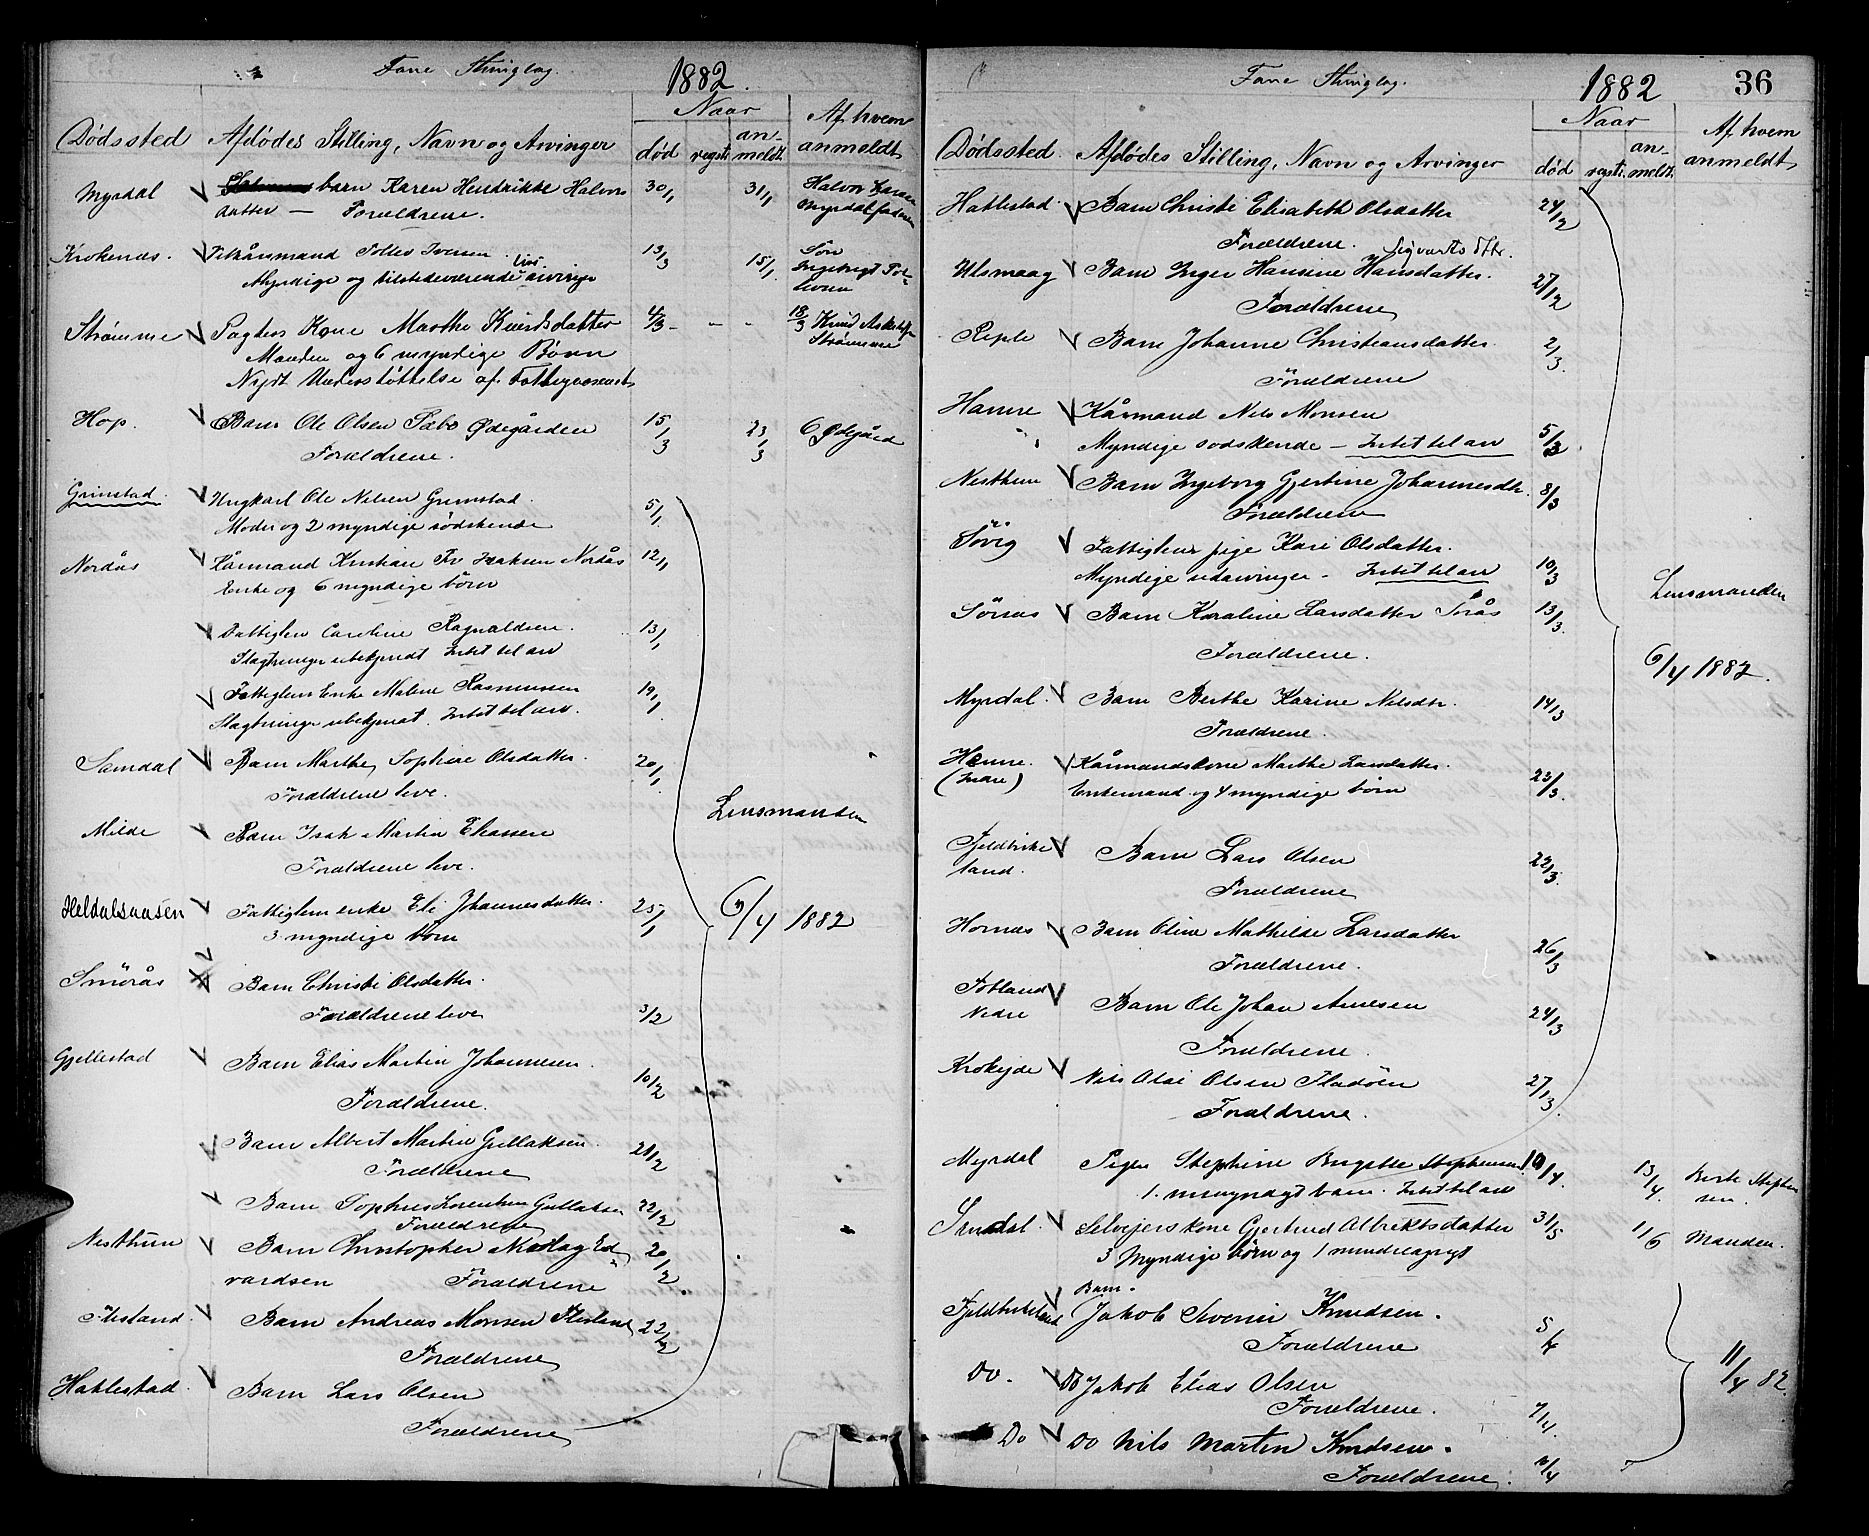 Fane Thinglag.
1882.
Naar
Dødssted Afdødes Stilling, Navn og Arvinger død registr. an-meldt. Af hvem anmeldt
Myrdal barn Karen Hendrikke Halvors 30/1 31/1 Halvor
datter — Forældrene. Myrdal faderen
Krokenæs. Vilkårsmand Tollev Iversen 13/3 15/1 Søn
Myndige og tilstedeværende Livs-arvinger Ingebrigt Tol-
levsen
Strømme Pagters Kone Marthe Knudsdatter 4/3 - " " 18/3 Knud
Manden og 6 myndige Børn Strømme
Nydt Understøttelse af Fattigvæsenet
Hop. Barn Ole Olsen Sæbø Ødegården 15/3 23/3 O Ødegård
Forældrene.
Grimstad. Ungkarl Ole Nilsen Grimstad. 5/1
Moder og 2 myndige södskende
Nordås Kårmand Kristian Fr Isaksen Nordås 12/1
Enke og 6 myndige börn
Fattiglem Caroline Ragnaldsen. 13/1
Slægtninge ubekjendt Intet til arv
Fattiglem Enke Malene Rasmussen 19/1
Slægtninge ubekjendt. Intet til arv.
Samdal Barn Marthe Sophie Olsdatter 20/1
Forældrene leve.
Milde Barn Isak Martin Eliassen
Forældrene leve.
Lensmanden
Heldalsaasen Fattiglem enke Eli Johannesdatter. 25/1
3 myndige börn
6/4 1882
Smörås Barn Christi Olsdatter.
Forældrene leve 3/2
Gjellestad Barn Elias Martin Johannesen. 10/2
Forældrene.
Barn Albert Martin Gullaksen. 21/2
Forældrene
Barn Sophus Lorentsen Gullaksen 22/2
Forældrene
Nesthun Barn Christopher Nicolay Ed- 20/2
vardsen Forældrene
Flesland. Barn Andreas Monsen Flesland 22/2
Forældrene
Hatlestad. Barn Lars Olsen
Forældrene
Fane Thinglag.
1882
36
Naar
Dødssted. Afdødes Stilling, Navn og Arvinger død registr. an-meldt. Af hvem anmeldt
Hatlestad. Barn Christi Elisabeth Olsdatter 24/2
Forældrene. Sigvarts dttr.
Ulsmaag Barn Inger Hansine Hansdatter. 27/2
Forældrene
Reple Barn Johanne Christiansdatter 2/3
Forældrene
Hamre Kårmand Nils Monsen
Myndige södskende — Intet til arv 5/3
Nesthun Barn Ingeborg Gjertine Johannesdtr. 8/3
Forældrene
Sövig Fattiglem pige Kari Olsdatter.
Myndige udarvinger - Intet til arv 10/3
Lensmanden
Sönæs Barn Karoline Larsdatter 13/3
Forældrene.
6/4 1882.
Myrdal. Barn Berthe Karine Nilsdtr. 14/3
Forældrene.
Hamre. Kårmandskone Marthe Larsdatter.
(Indre) Enkemand og 4 myndige börn 23/3.
Fjeldbirke Barn Lars Olsen 22/3
land. Forældrene
Hornæs Barn Oline Mathilde Larsdatter 26/3
Forældrene.
Totland Barn Ole Johan Arnesen 24/3
Nedre Forældrene.
Krokeide Nils Olai Olsen Flaöen 27/3
Forældrene.
Myrdal Pigen Stephine Birgitte Stephensen 10/4 13/4 Berte Stephen-
1. umyndigt barn. Intet til arv sen.
Samdal. Selvejerskone Gjertrud Albriktsdatter 31/5 1/6 Manden.
3 Myndige börn og 1 mindreaarigt
Barn.
Fjeldbirkeland Jakob Severin Knudsen. 5/4
Forældrene
Do. Do Jakob Elias Olsen 7/4
Forældrene.
11/4 82.
Do Do Nils Martin Knudsen.
Forældrene.